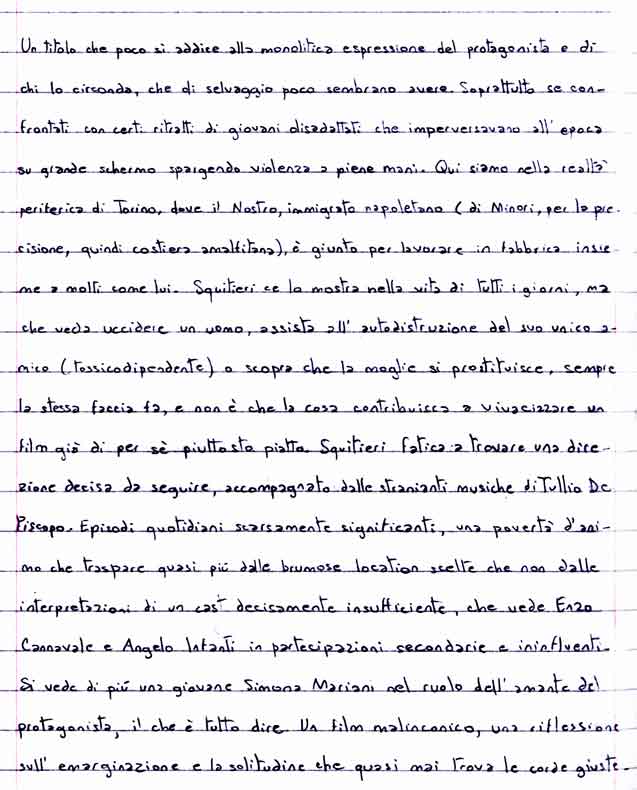 Un titolo che poco si addice alla monolitica espressione del protagonista e di
chi lo circonda, che di selvaggio poco sembrano avere. Soprattutto se con-
frontati con certi ritratti di giovani disadattati che imperversavano all'epoca
su grande schermo spargendo violenza a piene mani. Qui siamo nella realtà
periferica di Torino, dove il Nostro, immigrato napoletano (di Minori, per la pre-
cisione, quindi costiera amalfitana), è giunto per lavorare in fabbrica insie-
me a molti come lui. Squitieri ce lo mostra nella vita di tutti i giorni, ma
che veda uccidere un uomo, assista all'autodistruzione del suo unico a-
mico (tossicodipendente) o scopra che la moglie si prostituisce, sempre
la stessa faccia fa, e non è che la cosa contribuisca a vivacizzare un
film già di per sè piuttosto piatto. Squitieri fatica a trovare una dire-
zione decisa da seguire, accompagnato dalle stranianti musiche di Tullio De
Piscopo. Episodi quotidiani scarsamente significanti, una povertà d'ani-
mo che traspare quasi più dalle brumose location scelte che non dalle
interpretazioni di un cast decisamente insufficiente, che vede Enzo
Cannavale e Angelo Infanti in partecipazioni secondarie e ininfluenti.
Si vede di più una giovane Simona Mariani nel ruolo dell'amante del
protagonista, il che è tutto dire. Un film malinconico, una riflessione
sull'emarginazione e la solitudine che quasi mai trova le corde giuste.